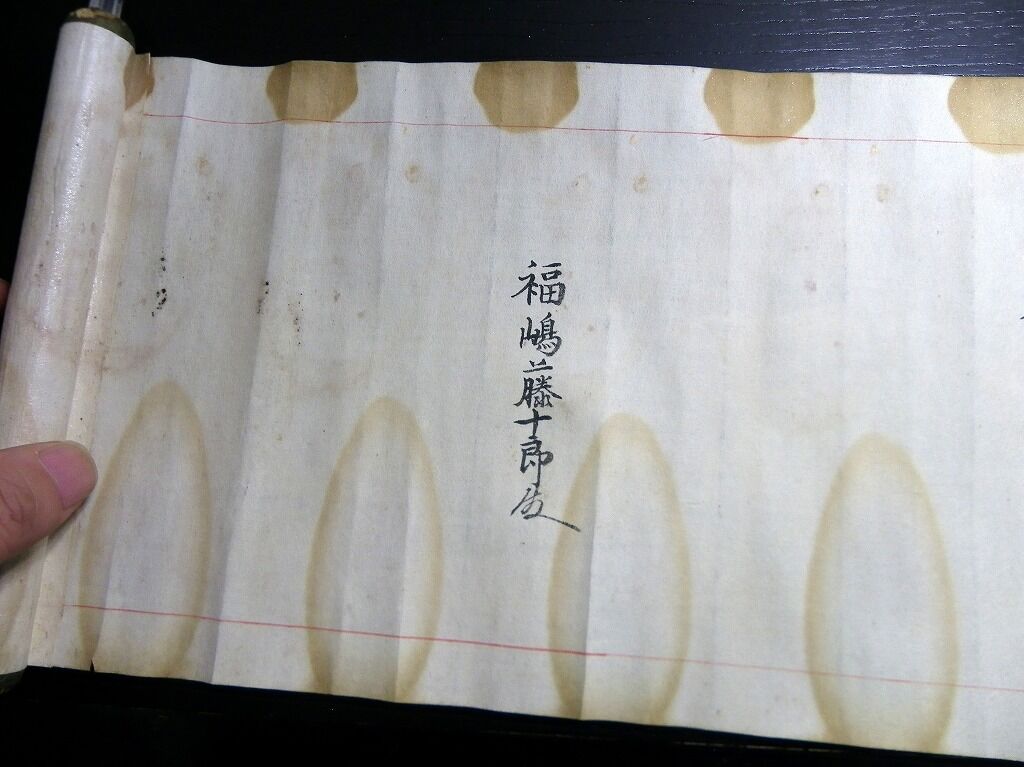 福嶋藤十郎殿